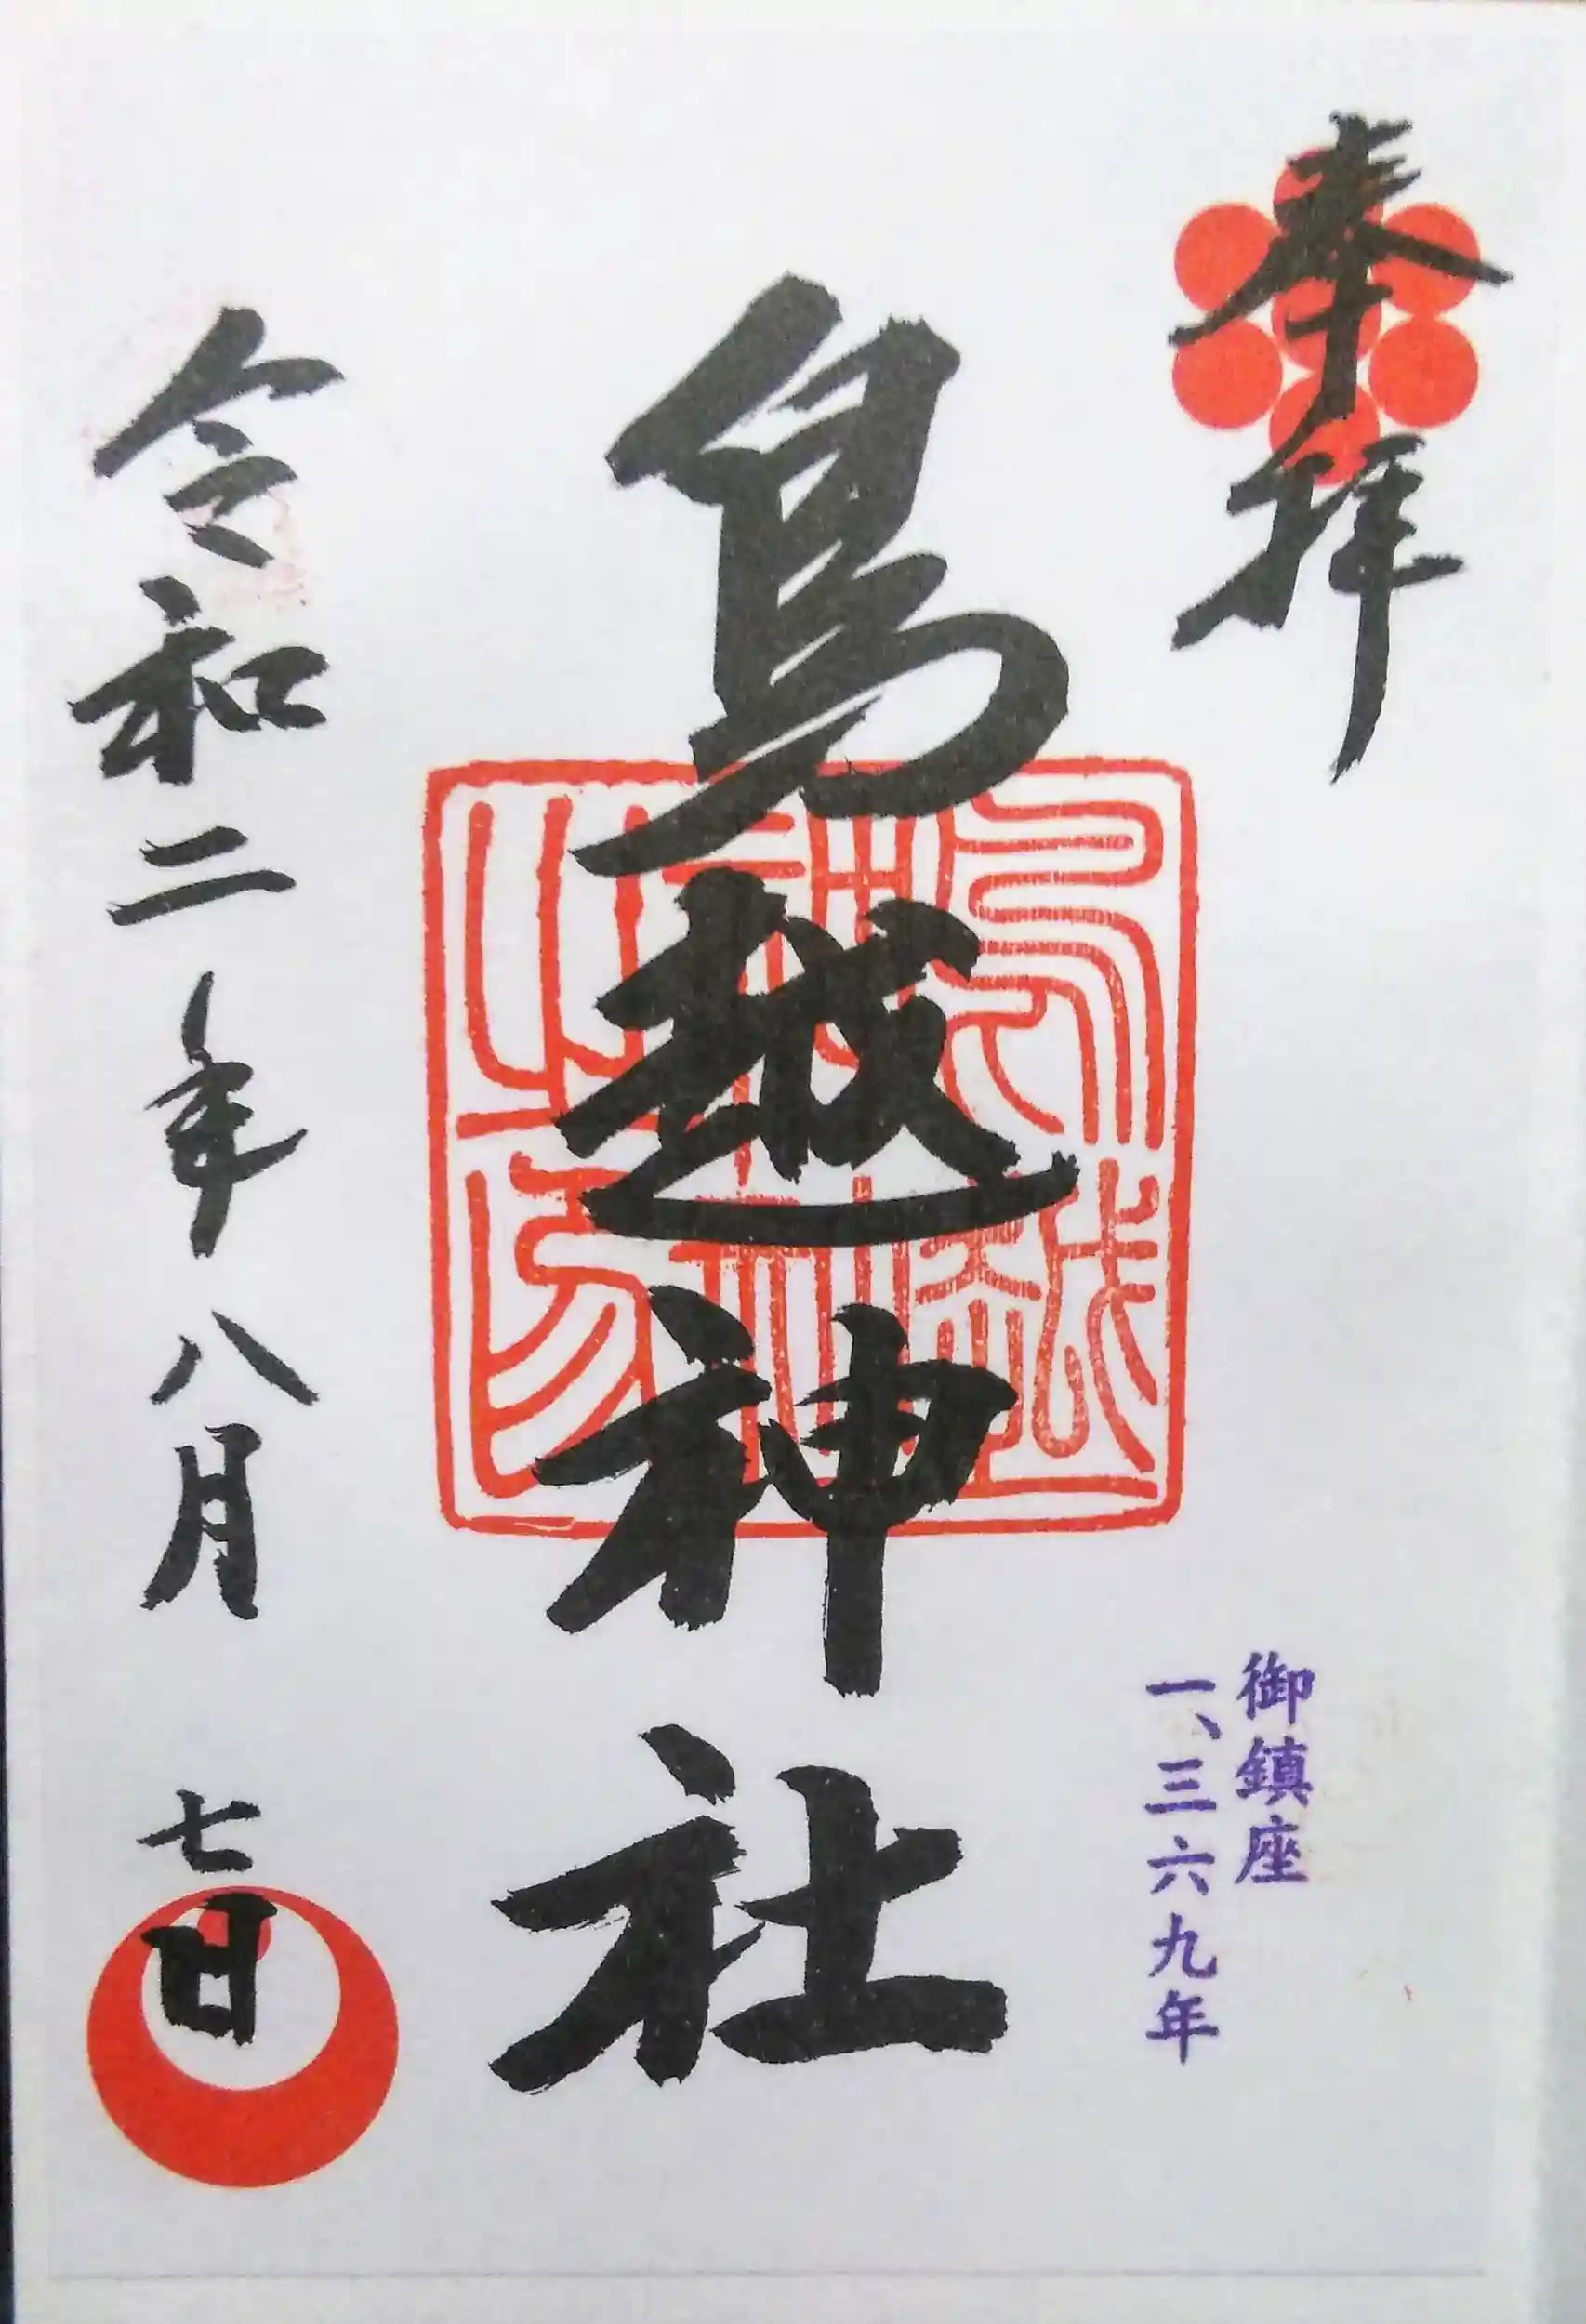 奉拝
御鎮座
一、三六九年
鳥越神社
鳥越神社之印
令和二年八月七日